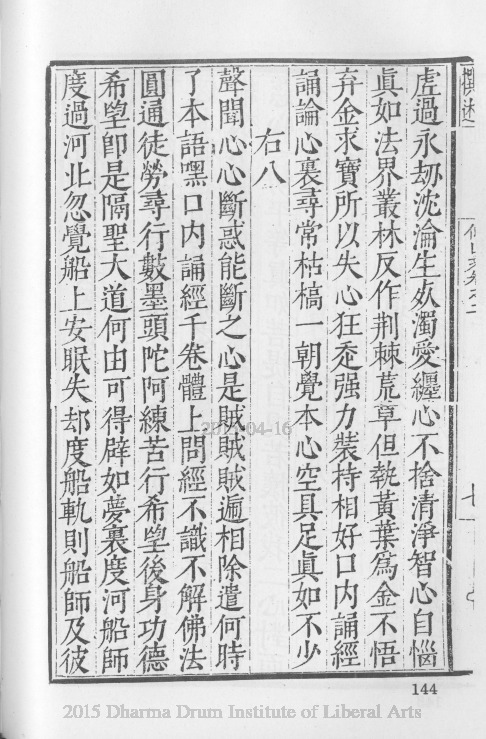 虛過永劫沈淪生死濁愛纏心不捨清淨智心自惱
眞如法界叢林反作荆棘荒草但執黃葉爲金不悟
弃金求寶所以失心狂走强力裝持相好口内誦經
誦論心裏尋常枯槁一朝覺本心空具足眞如不少
右八
聲聞心心斷惑能斷之心是賊賊賊遍相除遣何時
了本語嘿口内誦經千卷體上問經不識不解佛法
圓通徒勞尋行數墨頭陀阿練苦行希望後身功德
希望卽是隔聖大道何由可得辟如夢裏度河船師
度過河北忽覺船上安眠失却度船軌則船師及彼
144
2015-04-16
2015 Dharma Drum Institute of Liberal Arts